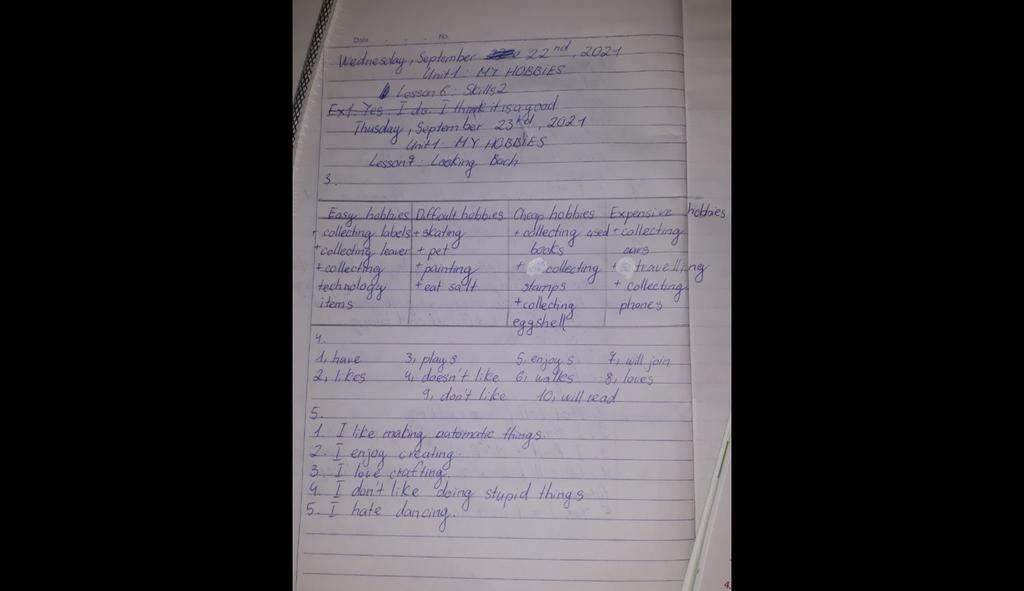 Date No.
Wednesday, September 22nd, 2021
Unit 1: MY HOBBIES
Lesson 6: Skills 2
Ex1. Yes, I do. I think it is a good
Thusday, September 23rd, 2021
Unit 1 MY HOBBIES
Lesson 7: Looking Bach
3.
Easy hobbies Difficult hobbies Cheap hobbies Expensive hobbies
+ collecting labels + skating + collecting used + collecting
+ collecting leaver + pet books cars
+ collecting + painting + collecting + travelling
technology + eat salt stamps + collecting
items + collecting phones
eggshell
4.
1, have 3, plays 5, enjoys 7, will join
2, likes 4, doesn't like 6, walks 8, loves
9, don't like 10, will read
5.
1. I like making automatic things.
2. I enjoy creating.
3. I love crafting.
4. I don't like doing stupid things
5. I hate dancing.
4.